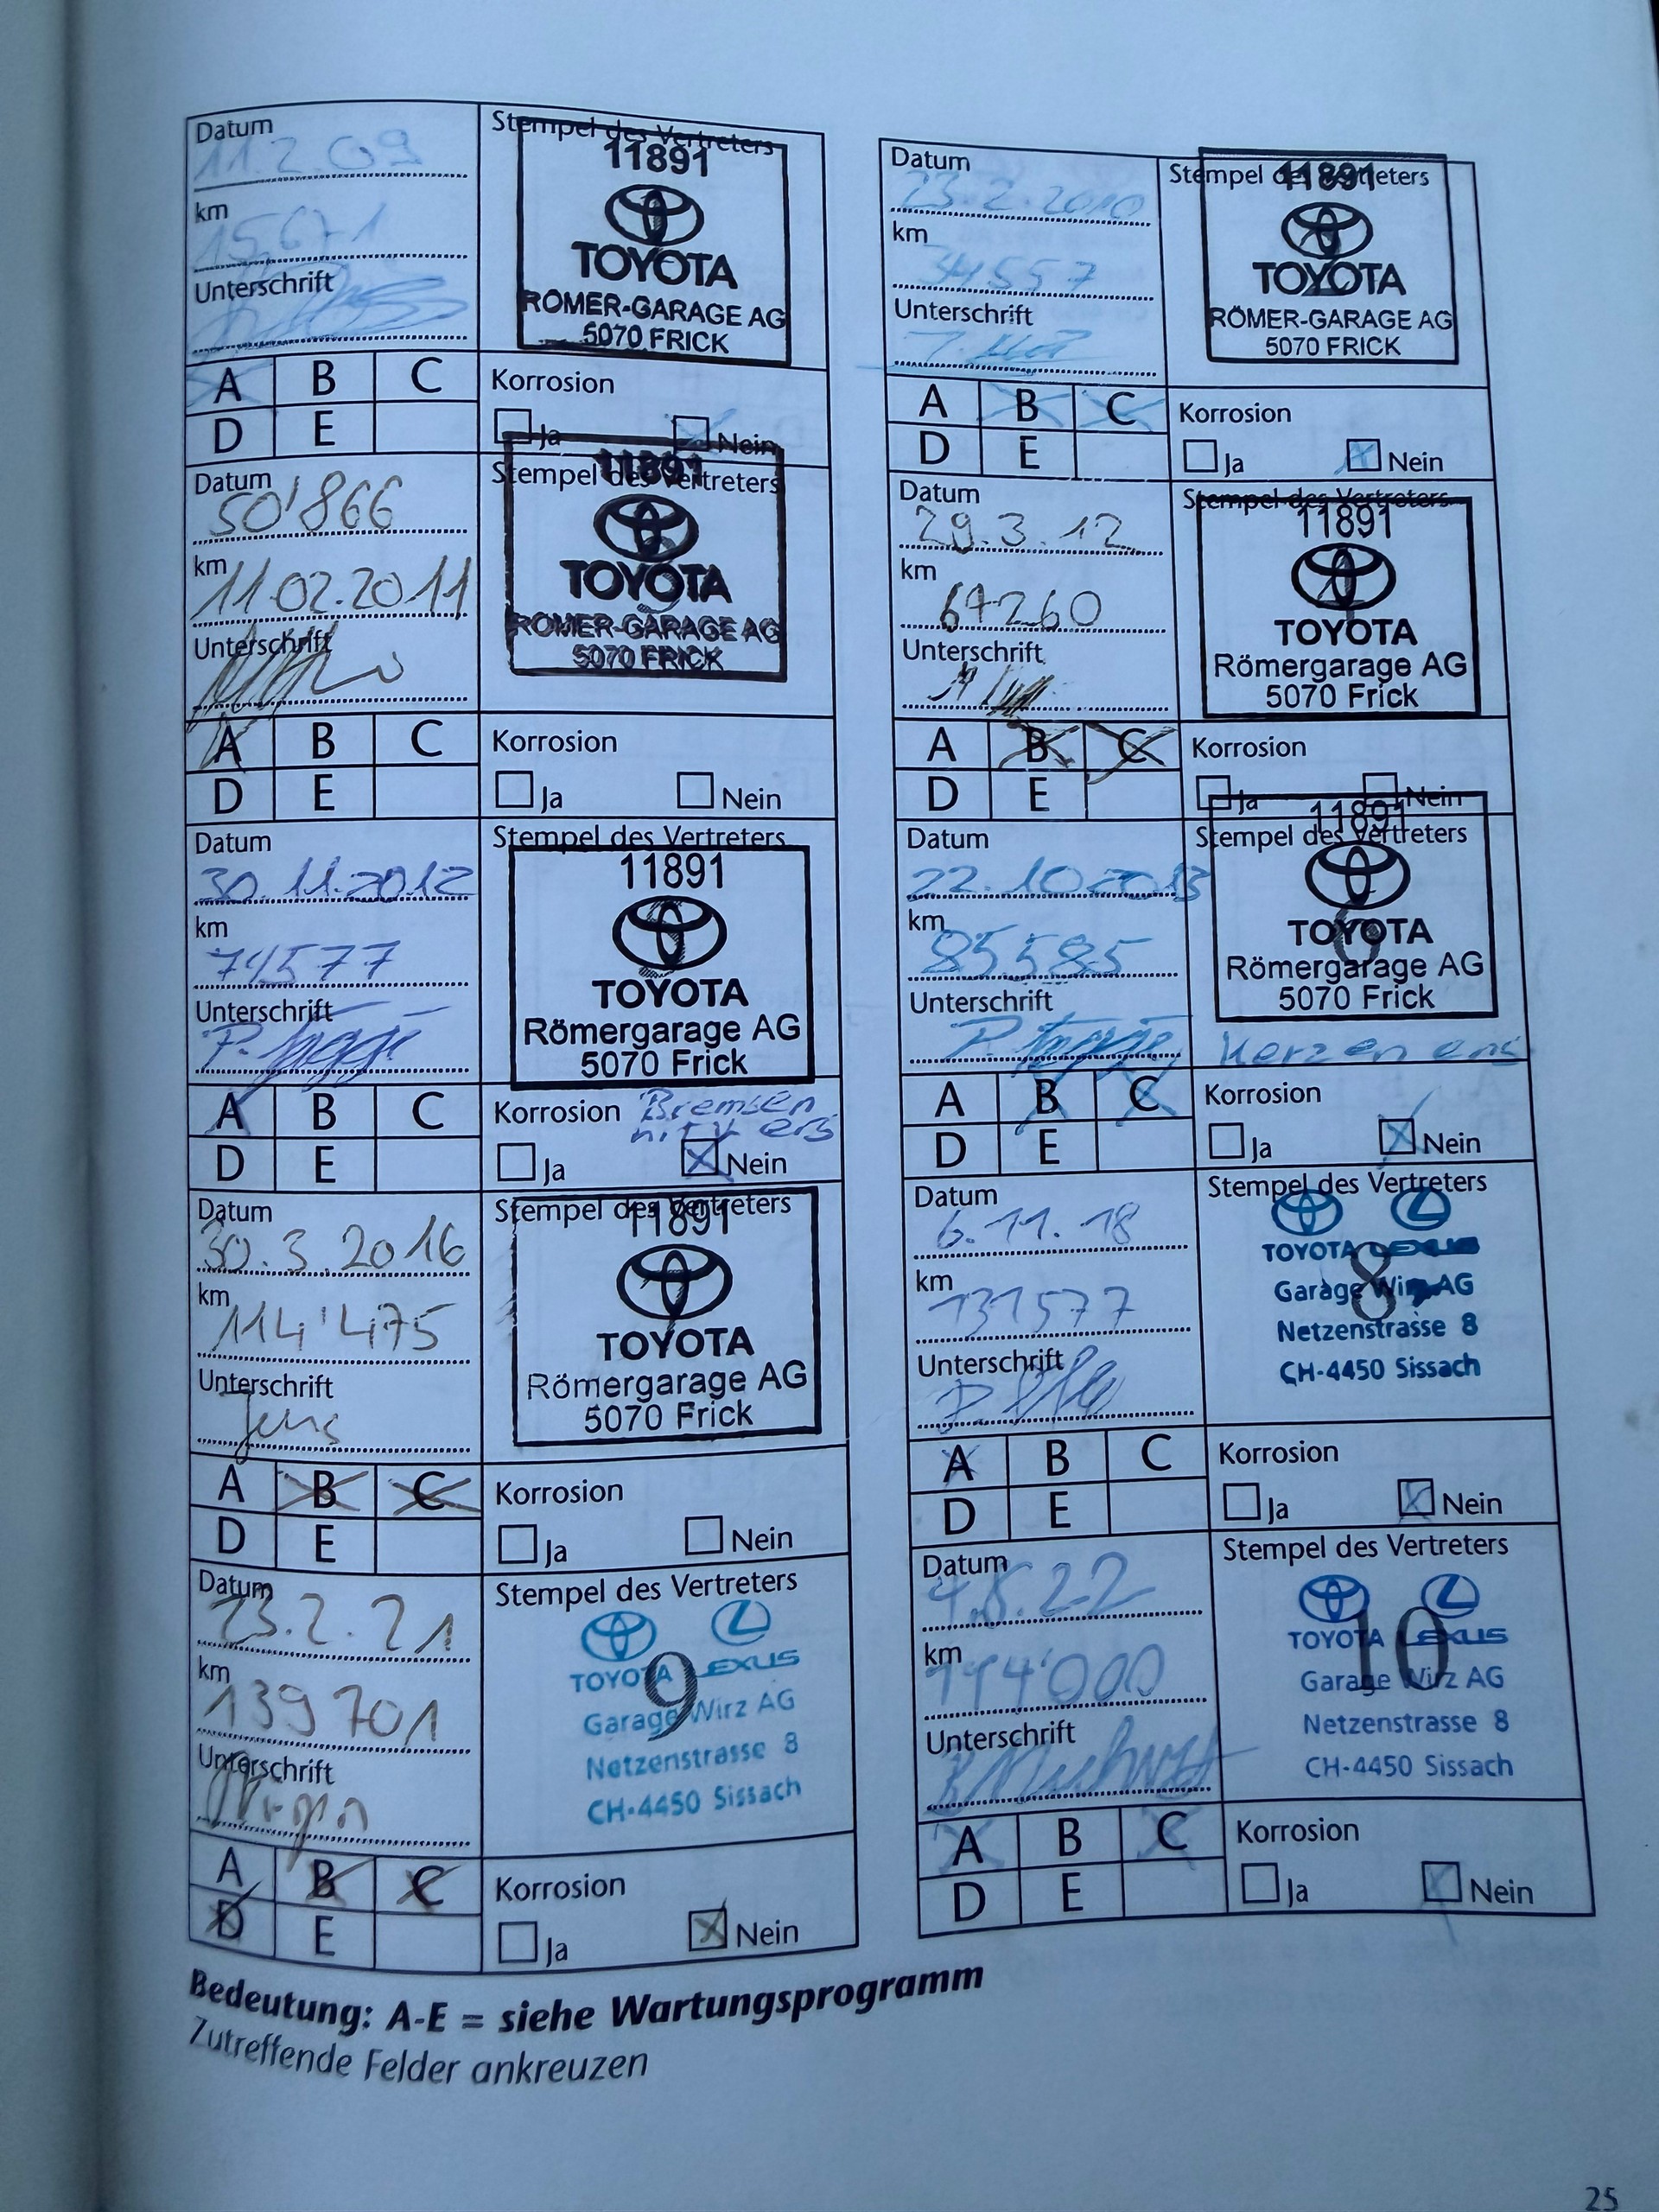 Datum
11.2.09
km
15671
Unterschrift
Stempel des Vertreters
11891
TOYOTA
RÖMER-GARAGE AG
5070 FRICK
A B C
D E
Korrosion
Ja Nein
Datum
23.2.2010
km
34557
Unterschrift
Stempel des Vertreters
11891
TOYOTA
RÖMER-GARAGE AG
5070 FRICK
A B C
D E
Korrosion
Ja Nein
Datum
50'866
km
11.02.2011
Unterschrift
Stempel des Vertreters
11891
TOYOTA
RÖMER-GARAGE AG
5070 FRICK
A B C
D E
Korrosion
Ja Nein
Datum
29.3.12
km
67260
Unterschrift
Stempel des Vertreters
11891
TOYOTA
Römergarage AG
5070 Frick
A B C
D E
Korrosion
Ja Nein
Datum
30.11.2012
km
74577
Unterschrift
Stempel des Vertreters
11891
TOYOTA
Römergarage AG
5070 Frick
A B C
D E
Korrosion Bremsen
Ja Nein
Datum
22.10.2013
km
85585
Unterschrift
Stempel des Vertreters
11891
TOYOTA
6
Römergarage AG
5070 Frick
Kerzen ers
A B C
D E
Korrosion
Ja Nein
Datum
30.3.2016
km
114'475
Unterschrift
Jens
Stempel des Vertreters
11891
TOYOTA
Römergarage AG
5070 Frick
A B C
D E
Korrosion
Ja Nein
Datum
6.11.18
km
131577
Unterschrift
Stempel des Vertreters
TOYOTA LEXUS
8
Garage Wirz AG
Netzenstrasse 8
CH-4450 Sissach
A B C
D E
Korrosion
Ja Nein
Datum
23.2.21
km
139701
Unterschrift
Stempel des Vertreters
TOYOTA LEXUS
9
Garage Wirz AG
Netzenstrasse 8
CH-4450 Sissach
A B C
D E
Korrosion
Ja Nein
Datum
4.8.22
km
144'000
Unterschrift
Stempel des Vertreters
TOYOTA LEXUS
10
Garage Wirz AG
Netzenstrasse 8
CH-4450 Sissach
A B C
D E
Korrosion
Ja Nein
Bedeutung: A-E = siehe Wartungsprogramm
Zutreffende Felder ankreuzen
25